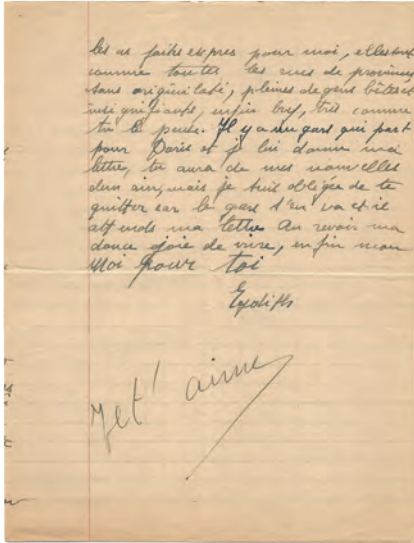 les as faites expres pour moi, elles sont
comme toutes les rues de province
sans originalité, pleines de gens bêtes et
insignifiants, enfin bref, très comme
tu le pense. Il y a un gars qui part
pour Paris et je lui donne ma
lettre, tu aura de mes nouvelles
demain, mais je suis obligée de te
quitter car le gars s'en va et il
attends ma lettre Au revoir ma
douce joie de vivre, enfin mon
Moi pour toi
Edith
Je t' aime